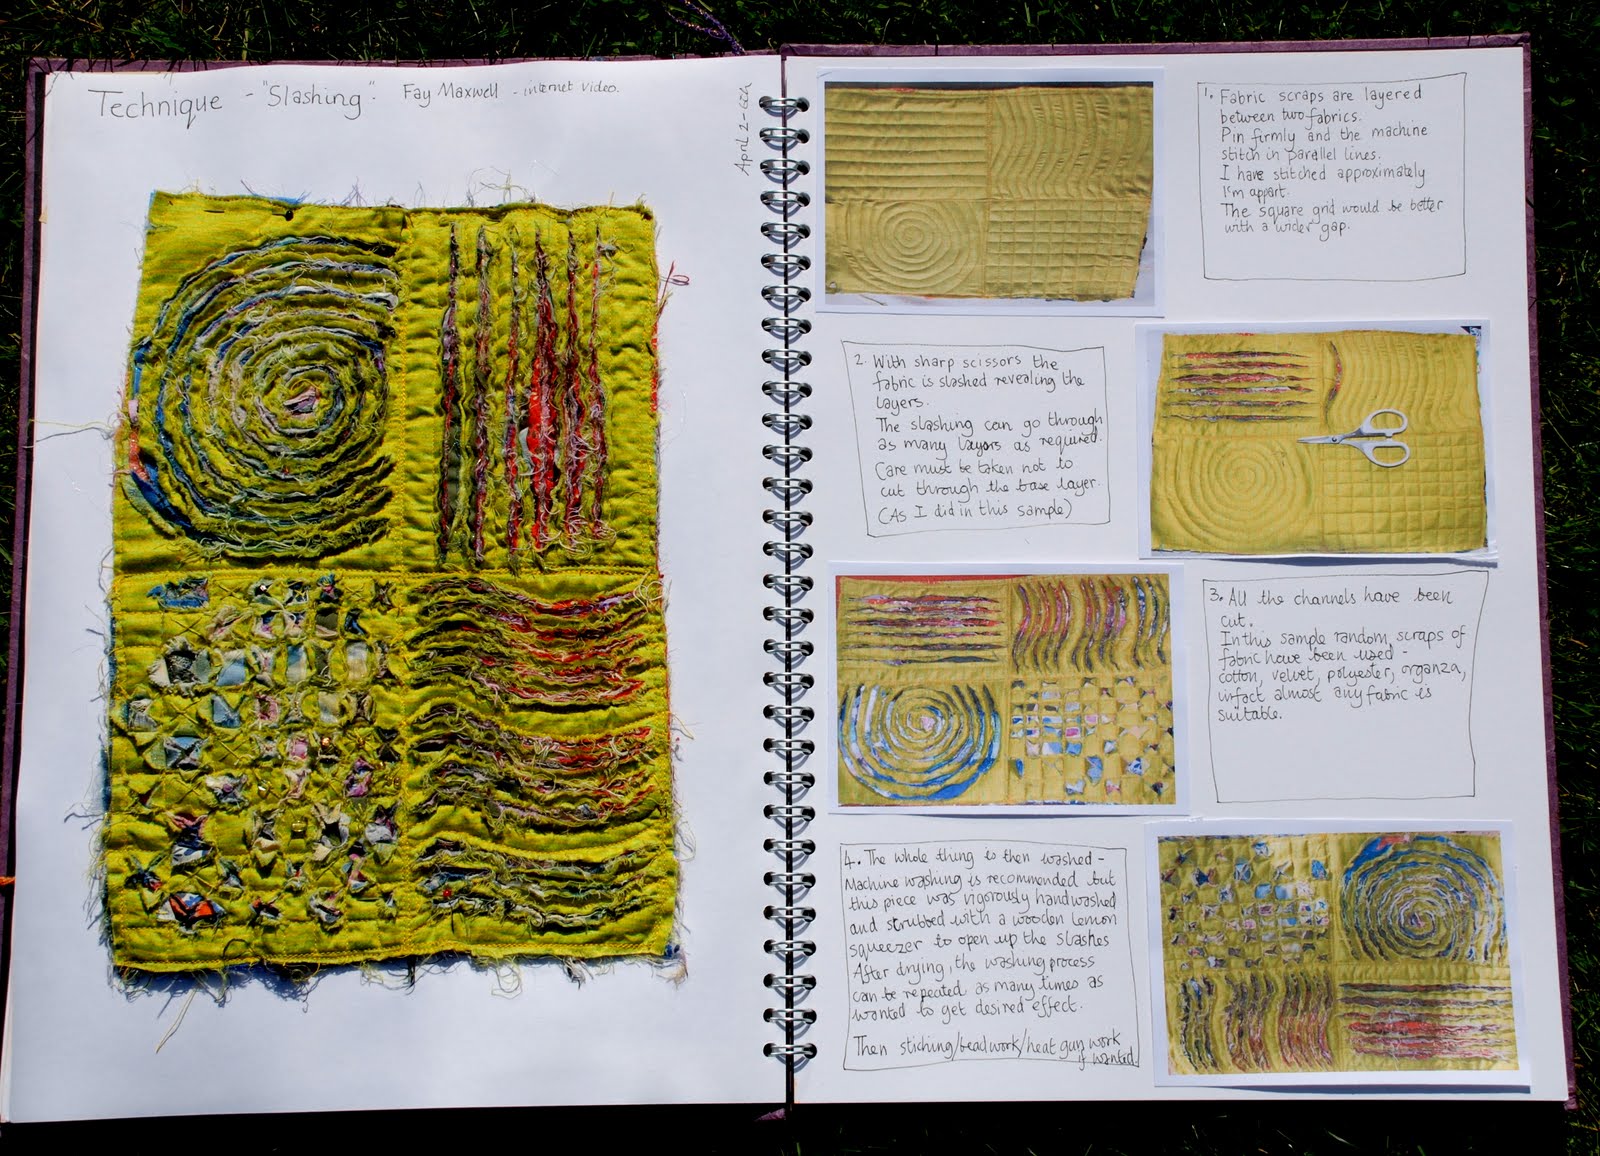 Technique - "Slashing". Fay Maxwell - internet video.
April 2-6th
1. Fabric scraps are layered
between two fabrics.
Pin firmly and the machine
stitch in parallel lines.
I have stitched approximately
1cm appart.
The square grid would be better
with a wider gap.
2. With sharp scissors the
fabric is slashed revealing the
layers.
The slashing can go through
as many layers as required.
Care must be taken not to
cut through the base layer.
(As I did in this sample)
3. All the channels have been
cut.
In this sample random scraps of
fabric have been used -
cotton, velvet, polyester, organza,
infact almost any fabric is
suitable.
4. The whole thing is then washed -
Machine washing is recommended but
this piece was vigorously handwashed
and scrubbed with a wooden lemon
squeezer to open up the slashes
After drying, the washing process
can be repeated as many times as
wanted to get desired effect.
Then stiching/beadwork/heat gun work
if wanted.